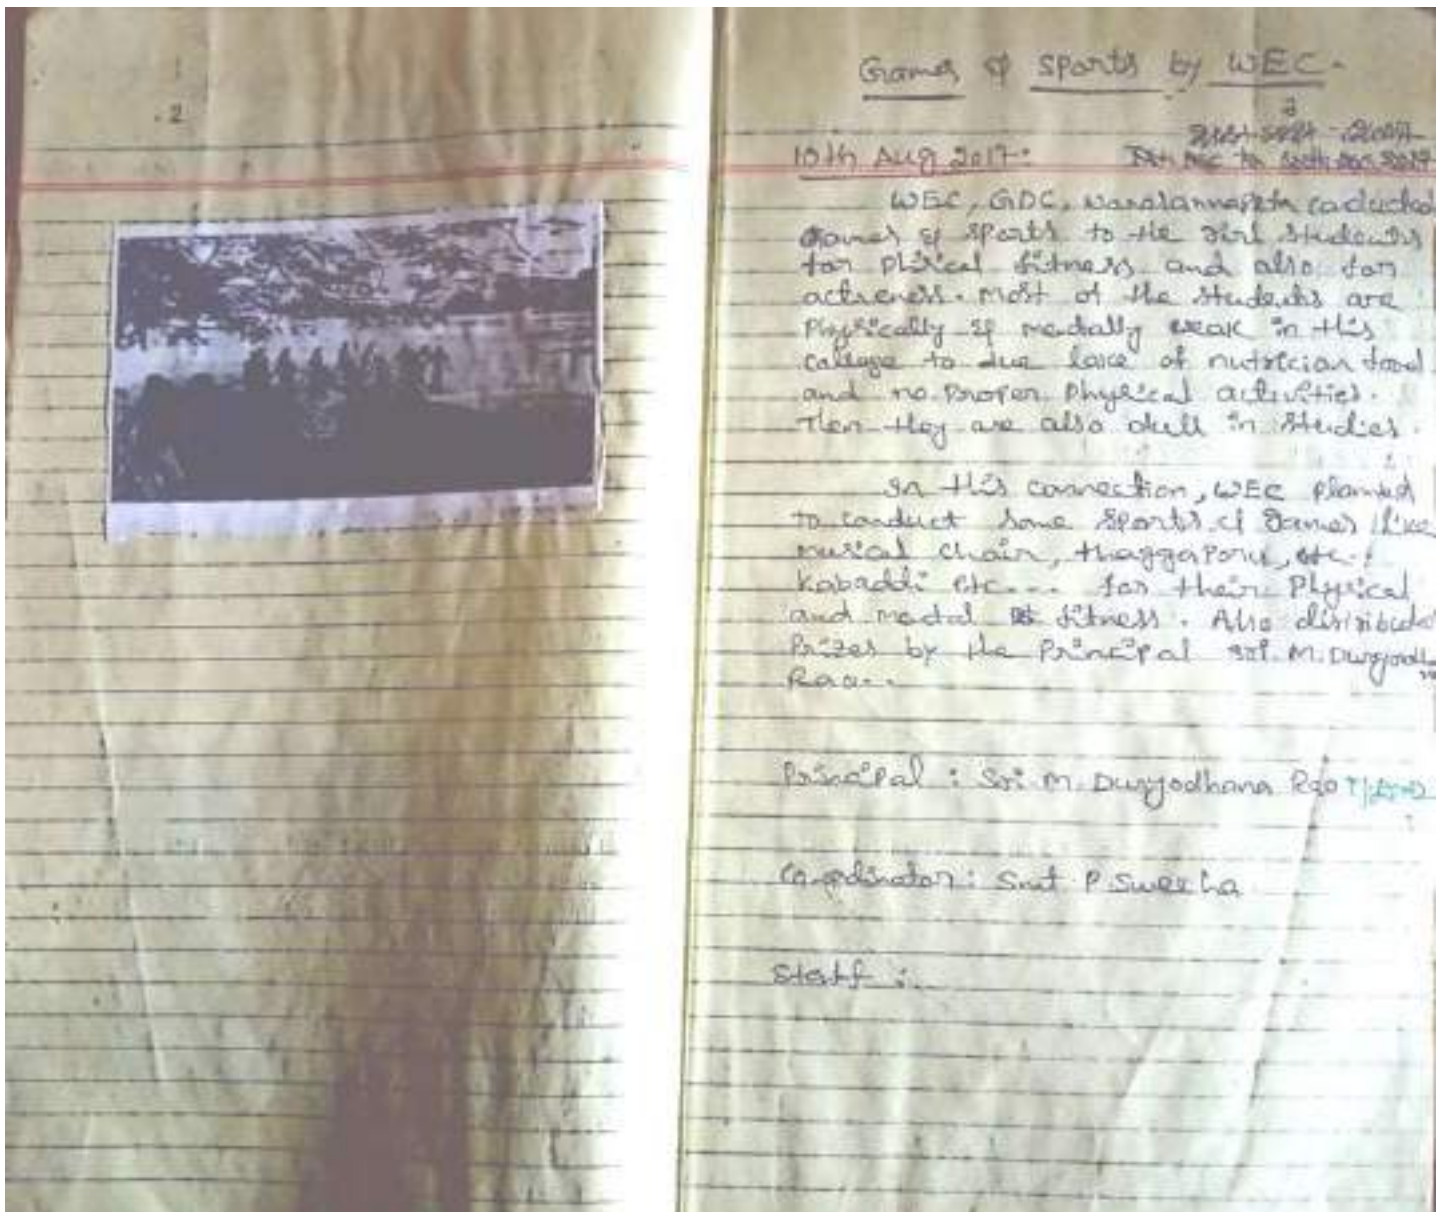 .2
Games & Sports by WEC.
10th Aug 2017:
WEC, GDC, Narasannapeta coducted
Games & Sports to the Girl Students
for phisical fitness and also for
activeness. Most of the students are
Physically & medially weak in this
college to due lace of nutrician food
and no proper Physical activities.
Then they are also dull in studies.
In this connection, WEC planned
to conduct some Sports & Games like
musical chair, thaggaporu, etc..
Kabaddi etc... for their Physical
and medal fitness. Also distributed
Prizes by the Principal Sri. M. Duryodhana
Rao..
Principal : Sri. M. Duryodhana Rao
Co-ordinator : Smt P. Swetcha
Staff :